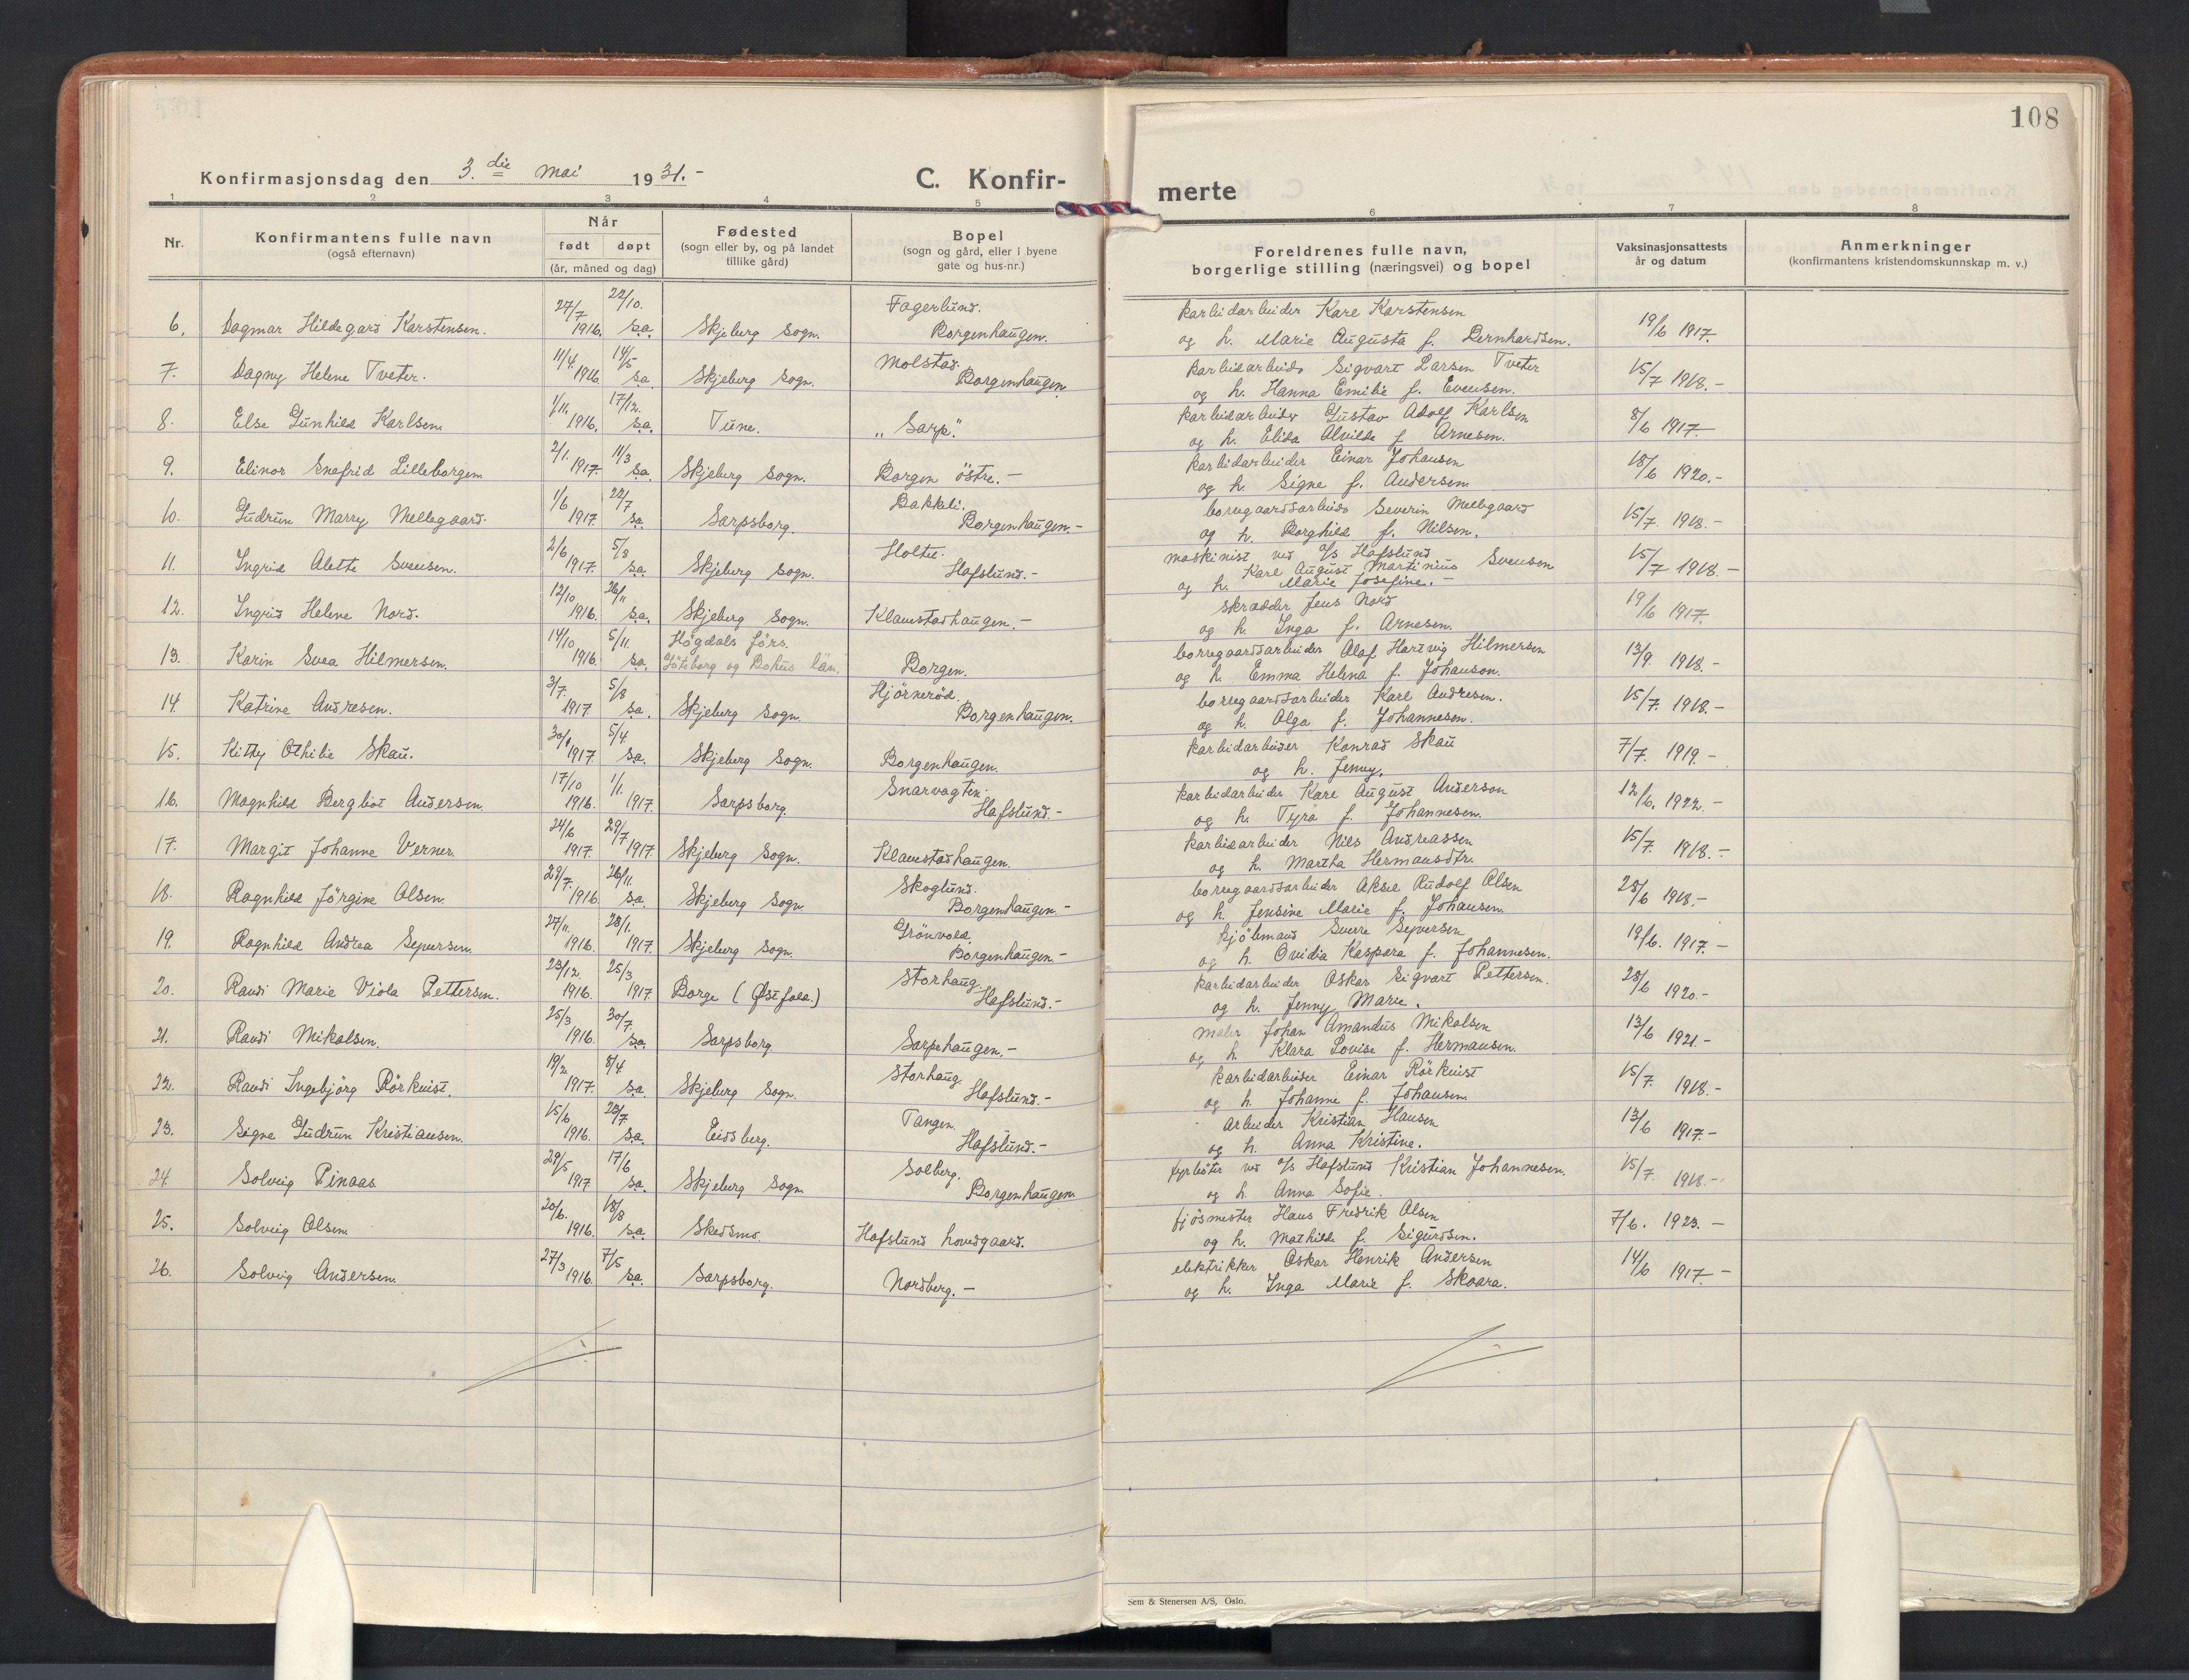 108
Konfirmasjonsdag den 3. die mai 1931.-
C. Konfir-
merte
1 2 3 4 5 6 7 8
Nr.
Konfirmantens fulle navn
(også efternavn)
Når
født døpt
(år, måned og dag)
Fødested
(sogn eller by, og på landet
tillike gård)
Bopel
(sogn og gård, eller i byene
gate og hus-nr.)
Foreldrenes fulle navn,
borgerlige stilling (næringsvei) og bopel
Vaksinasjonsattests
år og datum
Anmerkninger
(konfirmantens kristendomskunnskap m. v.)
27/7 22/10. Fagerlund. karbidarbeider Karl Karstensen
6. Dagmar Hildegard Karstensen. 1916. s.a. Skjeberg sogn. Borgenhaugen. og h. Marie Augusta f. Bernhardsen. 19/6 1917.
11/4. 14/5 Molstad. karbidarbeids Sigvart Larsen Tveter
7. Dagny Helene Tveter. 1916. s.a. Skjeberg sogn. Borgenhaugen. og h. Hanna Emilie f. Evensen. 15/7 1918.-
1/11. 17/12. karbidarbeider Gustav Adolf Karlsen
8. Else Gunhild Karlsen 1916. s.a. Tune. "Sarp". og h. Elida Alvilde f. Arnesen. 8/6 1917.
2/1. 11/3 karbidarbeider Einar Johansen
9. Elinor Enefrid Lilleborgen 1917. s.a. Skjeberg sogn. Borgen östre.- og h. Signe f. Andersen 18/6 1920.-
1/6 22/7 Bakkeli. borregaardsarbeids Severin Mellegaard
10. Gudrun Marry Mellegaard. 1917. s.a. Sarpsborg. Borgenhaugen.- og h. Borghild f. Nilsen. 15/7. 1918.-
2/6 5/8 Holte. maskinist ved a/s Hafslund
11. Ingrid Alette Svensen. 1917. s.a. Skjeberg sogn. Hafslund.- Karl August Martinius Svensen 15/7 1918.-
og h. Marie Josefine.-
12/10 26/11 skrædder Jens Nord
12. Ingrid Helene Nord. 1916. s.a. Skjeberg sogn. Klavestadhaugen.- og h. Inga f. Arnesen. 19/6 1917.
14/10 5/11. Högdals förs. borregaardsarbeider Olaf Hartvig Hilmersen
13. Karin Svea Hilmersen. 1916. s.a. Göteborg og Bohus län. Borgen. og h. Emma Helena f. Johanson. 13/9. 1918.-
3/7. 5/8 Hjörneröd. borregaardsarbeider Karl Andresen.
14. Katrine Andresen. 1917. s.a. Skjeberg sogn. Borgenhaugen. og h. Olga f. Johannesen. 15/7. 1918.-
30/1 5/4. karbidarbeider Konrad Skau
15. Kitty Othilie Skau. 1917. s.a. Skjeberg sogn. Borgenhaugen. og h. Jenny. 7/7. 1919.-
17/10 1/1. Snarvagten. karbidarbeider Karl August Anderson
16. Magnhild Bergliot Andersen. 1916. 1917. Sarpsborg. Hafslund.- og h. Tyra f. Johannesen. 12/6. 1922.-
24/6 29/7 karbidarbeider Nils Andreassen
17. Margit Johanne Verner. 1917. 1917. Skjeberg sogn. Klavestadhaugen. og h. Martha Hermansdtr. 15/7. 1918.-
29/7. 26/11. Skoglund. borregaardsarbeider Aksel Rudolf Olsen
18. Ragnhild Jörgine Olsen. 1916. s.a. Skjeberg sogn. Borgenhaugen.- og h. Jensine Marie f. Johansen. 25/6 1918.-
27/11. 28/1. Grönvold. kjöbmand Sverre Syversen
19. Ragnhild Andrea Syversen. 1916. 1917. Skjeberg sogn. Borgenhaugen.- og h. Ovidia Kaspara f. Johannesen. 19/6. 1917.-
23/12. 25/3 Storhaug. karbidarbeider Oskar Sigvart Pettersen.
20. Randi Marie Viola Pettersen. 1916. 1917. Borge (Østfold.) Hafslund.- og h. Jenny Marie. 28/6 1920.-
25/3 30/7. maler Johan Amandus Mikalsen
21. Randi Mikalsen. 1916. s.a. Sarpsborg. Sarpehaugen.- og h. Klara Lovise f. Hermansen. 13/6 1921.-
19/2 8/4 Storhaug. karbidarbeider Einar Rörkvist
22. Randi Ingebjörg Rörkvist. 1917. s.a. Skjeberg sogn. Hafslund.- og h. Johanne f. Johansen 15/7. 1918.-
15/6 23/7 Tangen. arbeider Kristian Hansen
23. Signe Gudrun Kristiansen. 1916. s.a. Eidsberg. Hafslund.- og h. Anna Kristine. 13/6 1917.-
29/5 17/6 Solberg. fyrböter ved a/s Hafslund Kristian Johannesen.
24. Solveig Pinaas 1917 s.a. Skjeberg sogn Borgenhaugen og h. Anna Sofie. 15/7. 1918.-
20/6. 18/8 fjösmester Hans Fredrik Olsen
25. Solveig Olsen. 1916. s.a. Skedsmo. Hafslund hovedgaard. og h. Mathilde f. Sigurdsen. 7/6. 1923.-
27/3 7/5 elektrikker Oskar Henrik Andersen
26. Solveig Andersen. 1916. s.a. Sarpsborg. Nordberg.- og h. Inga Marie f. Skaara. 14/6 1917.-
Sem & Stenersen A/S, Oslo.